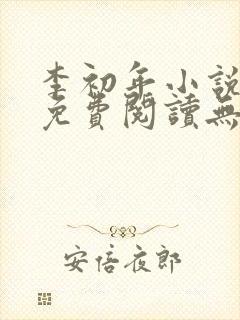 李初年小說
免費閱讀無
安倍夜郎